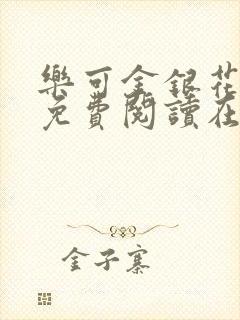 樂可金銀花
免費閱讀在
金子寨